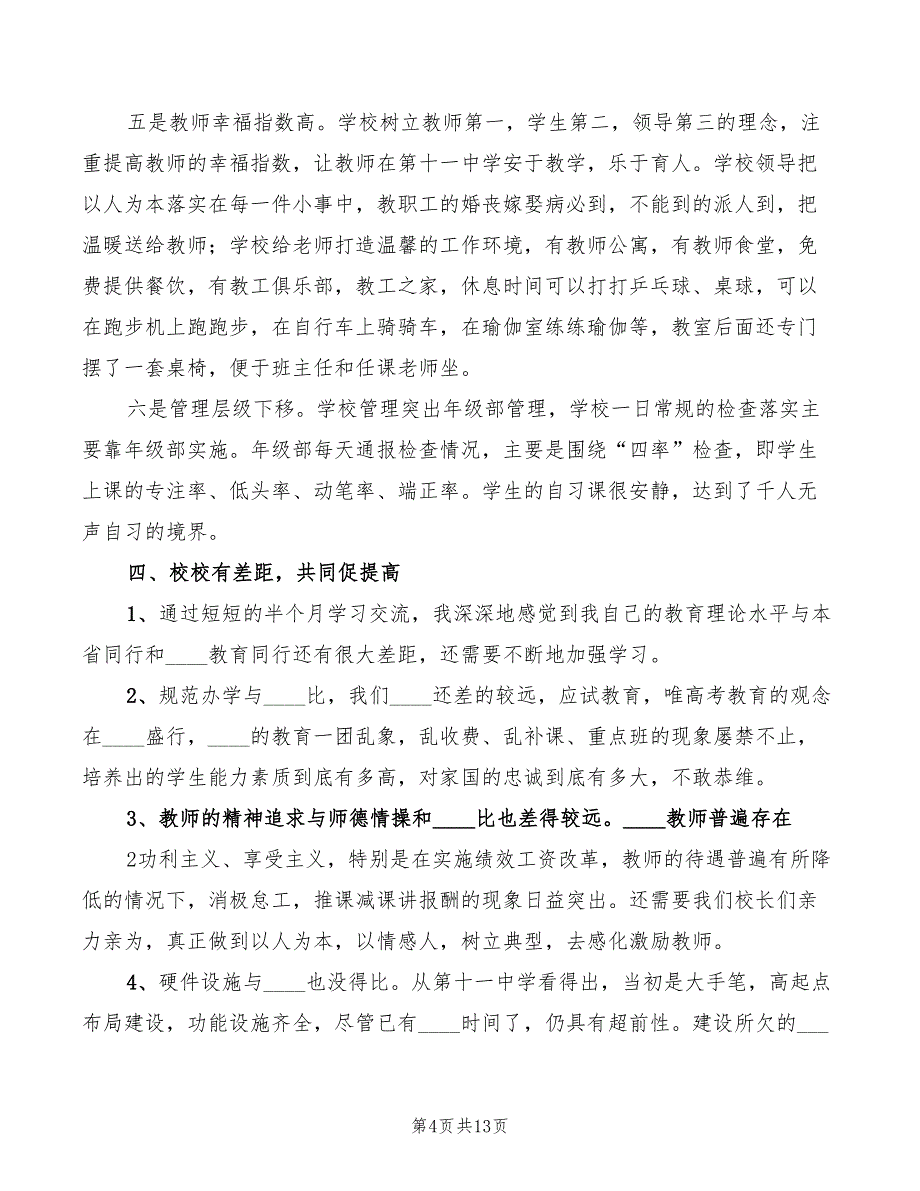 五是教师幸福指数高。学校树立教师第一，学生第二，领导第三的理念，注
重提高教师的幸福指数，让教师在第十一中学安于教学，乐于育人。学校领导把
以人为本落实在每一件小事中，教职工的婚丧嫁娶病必到，不能到的派人到，把
温暖送给教师；学校给老师打造温馨的工作环境，有教师公寓，有教师食堂，免
费提供餐饮，有教工俱乐部，教工之家，休息时间可以打打乒乓球、桌球，可以
在跑步机上跑跑步，在自行车上骑骑车，在瑜伽室练练瑜伽等，教室后面还专门
摆了一套桌椅，便于班主任和任课老师坐。
六是管理层级下移。学校管理突出年级部管理，学校一日常规的检查落实主
要靠年级部实施。年级部每天通报检查情况，主要是围绕“四率”检查，即学生
上课的专注率、低头率、动笔率、端正率。学生的自习课很安静，达到了千人无
声自习的境界。
四、校校有差距，共同促提高
1、通过短短的半个月学习交流，我深深地感觉到我自己的教育理论水平与本
省同行和____教育同行还有很大差距，还需要不断地加强学习。
2、规范办学与____比，我们____还差的较远，应试教育，唯高考教育的观念
在____盛行，____的教育一团乱象，乱收费、乱补课、重点班的现象屡禁不止，
培养出的学生能力素质到底有多高，对家国的忠诚到底有多大，不敢恭维。
3、教师的精神追求与师德情操和____比也差得较远。____教师普遍存在
2功利主义、享受主义，特别是在实施绩效工资改革，教师的待遇普遍有所降
低的情况下，消极怠工，推课减课讲报酬的现象日益突出。还需要我们校长们亲
力亲为，真正做到以人为本，以情感人，树立典型，去感化激励教师。
4、硬件设施与____也没得比。从第十一中学看得出，当初是大手笔，高起点
布局建设，功能设施齐全，尽管已有____时间了，仍具有超前性。建设所欠的___
第4页共13页